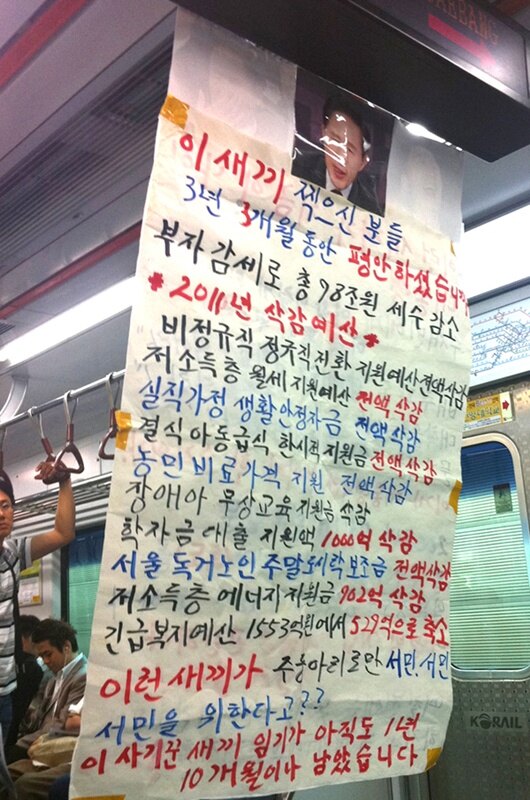 이 새끼 찍으신 분들
3년 3개월 동안 평안하셨습니까
부자감세로 총 98조원 세수 감소
* 2011년 삭감예산 *
비정규직 정규직전환 지원예산 전액삭감
저소득층 월세 지원예산 전액 삭감
실직가정 생활안정자금 전액 삭감
결식아동급식 한시적지원금 전액삭감
농민 비료가격 지원 전액 삭감
장애아 무상교육 지원금 삭감
학자금 대출 지원액 1000억 삭감
서울 독거노인 주말도시락 보조금 전액삭감
저소득층 에너지지원금 902억 삭감
긴급복지예산 1553억원에서 529억으로 축소
이런 새끼가 주둥아리로만 서민, 서민
서민을 위한다고??
이 사기꾼 새끼 임기가 아직도 1년
10개월이나 남았습니다
KORAIL